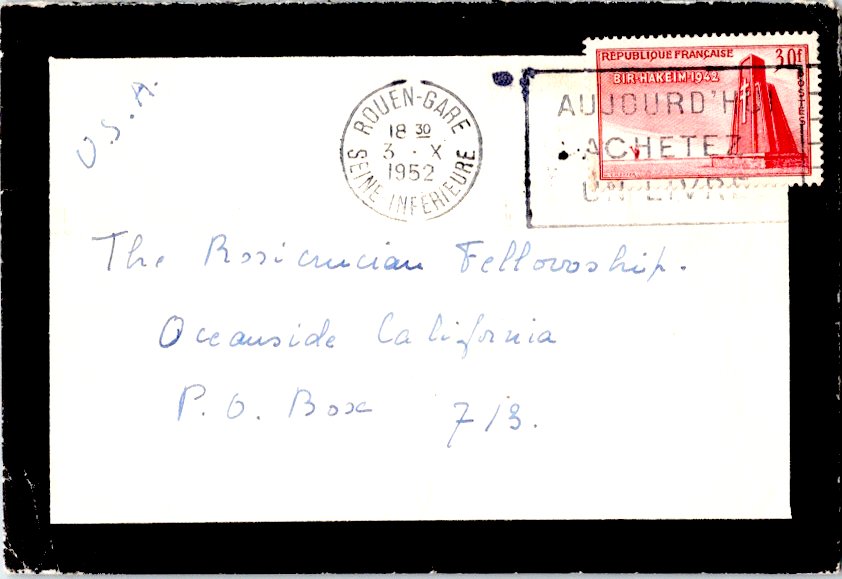 U.S.A.
ROUEN-GARE
18 30
3 · X
1952
SEINE INFERIEURE
REPUBLIQUE FRANÇAISE
30f
BIR-HAKEIM·1942
POSTES
AUJOURD'HUI
ACHETEZ
UN LIVRE
The Rosicrucian Fellowship.
Oceanside California
P. O. Box 713.